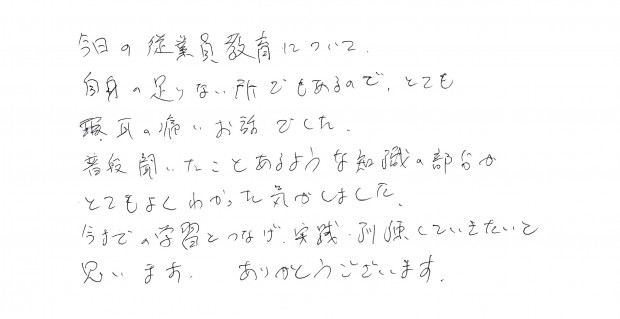 今日の従業員教育について、
自身の足りない所でもあるので、とても
耳の痛いお話でした。
普段聞いたことあるような知識の部分が
とてもよくわかった気がしました。
今までの学習とつなげ、実践・訓練していきたいと
思います。 ありがとうございます。